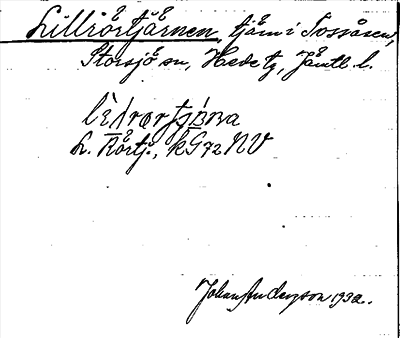 Lillrörtjärnen, tjärn i Tossåsen,
Storsjö sn, Hede tg, Jämtl. l.
L. Rörtj., kG72NV
Johan Anderson 1932.